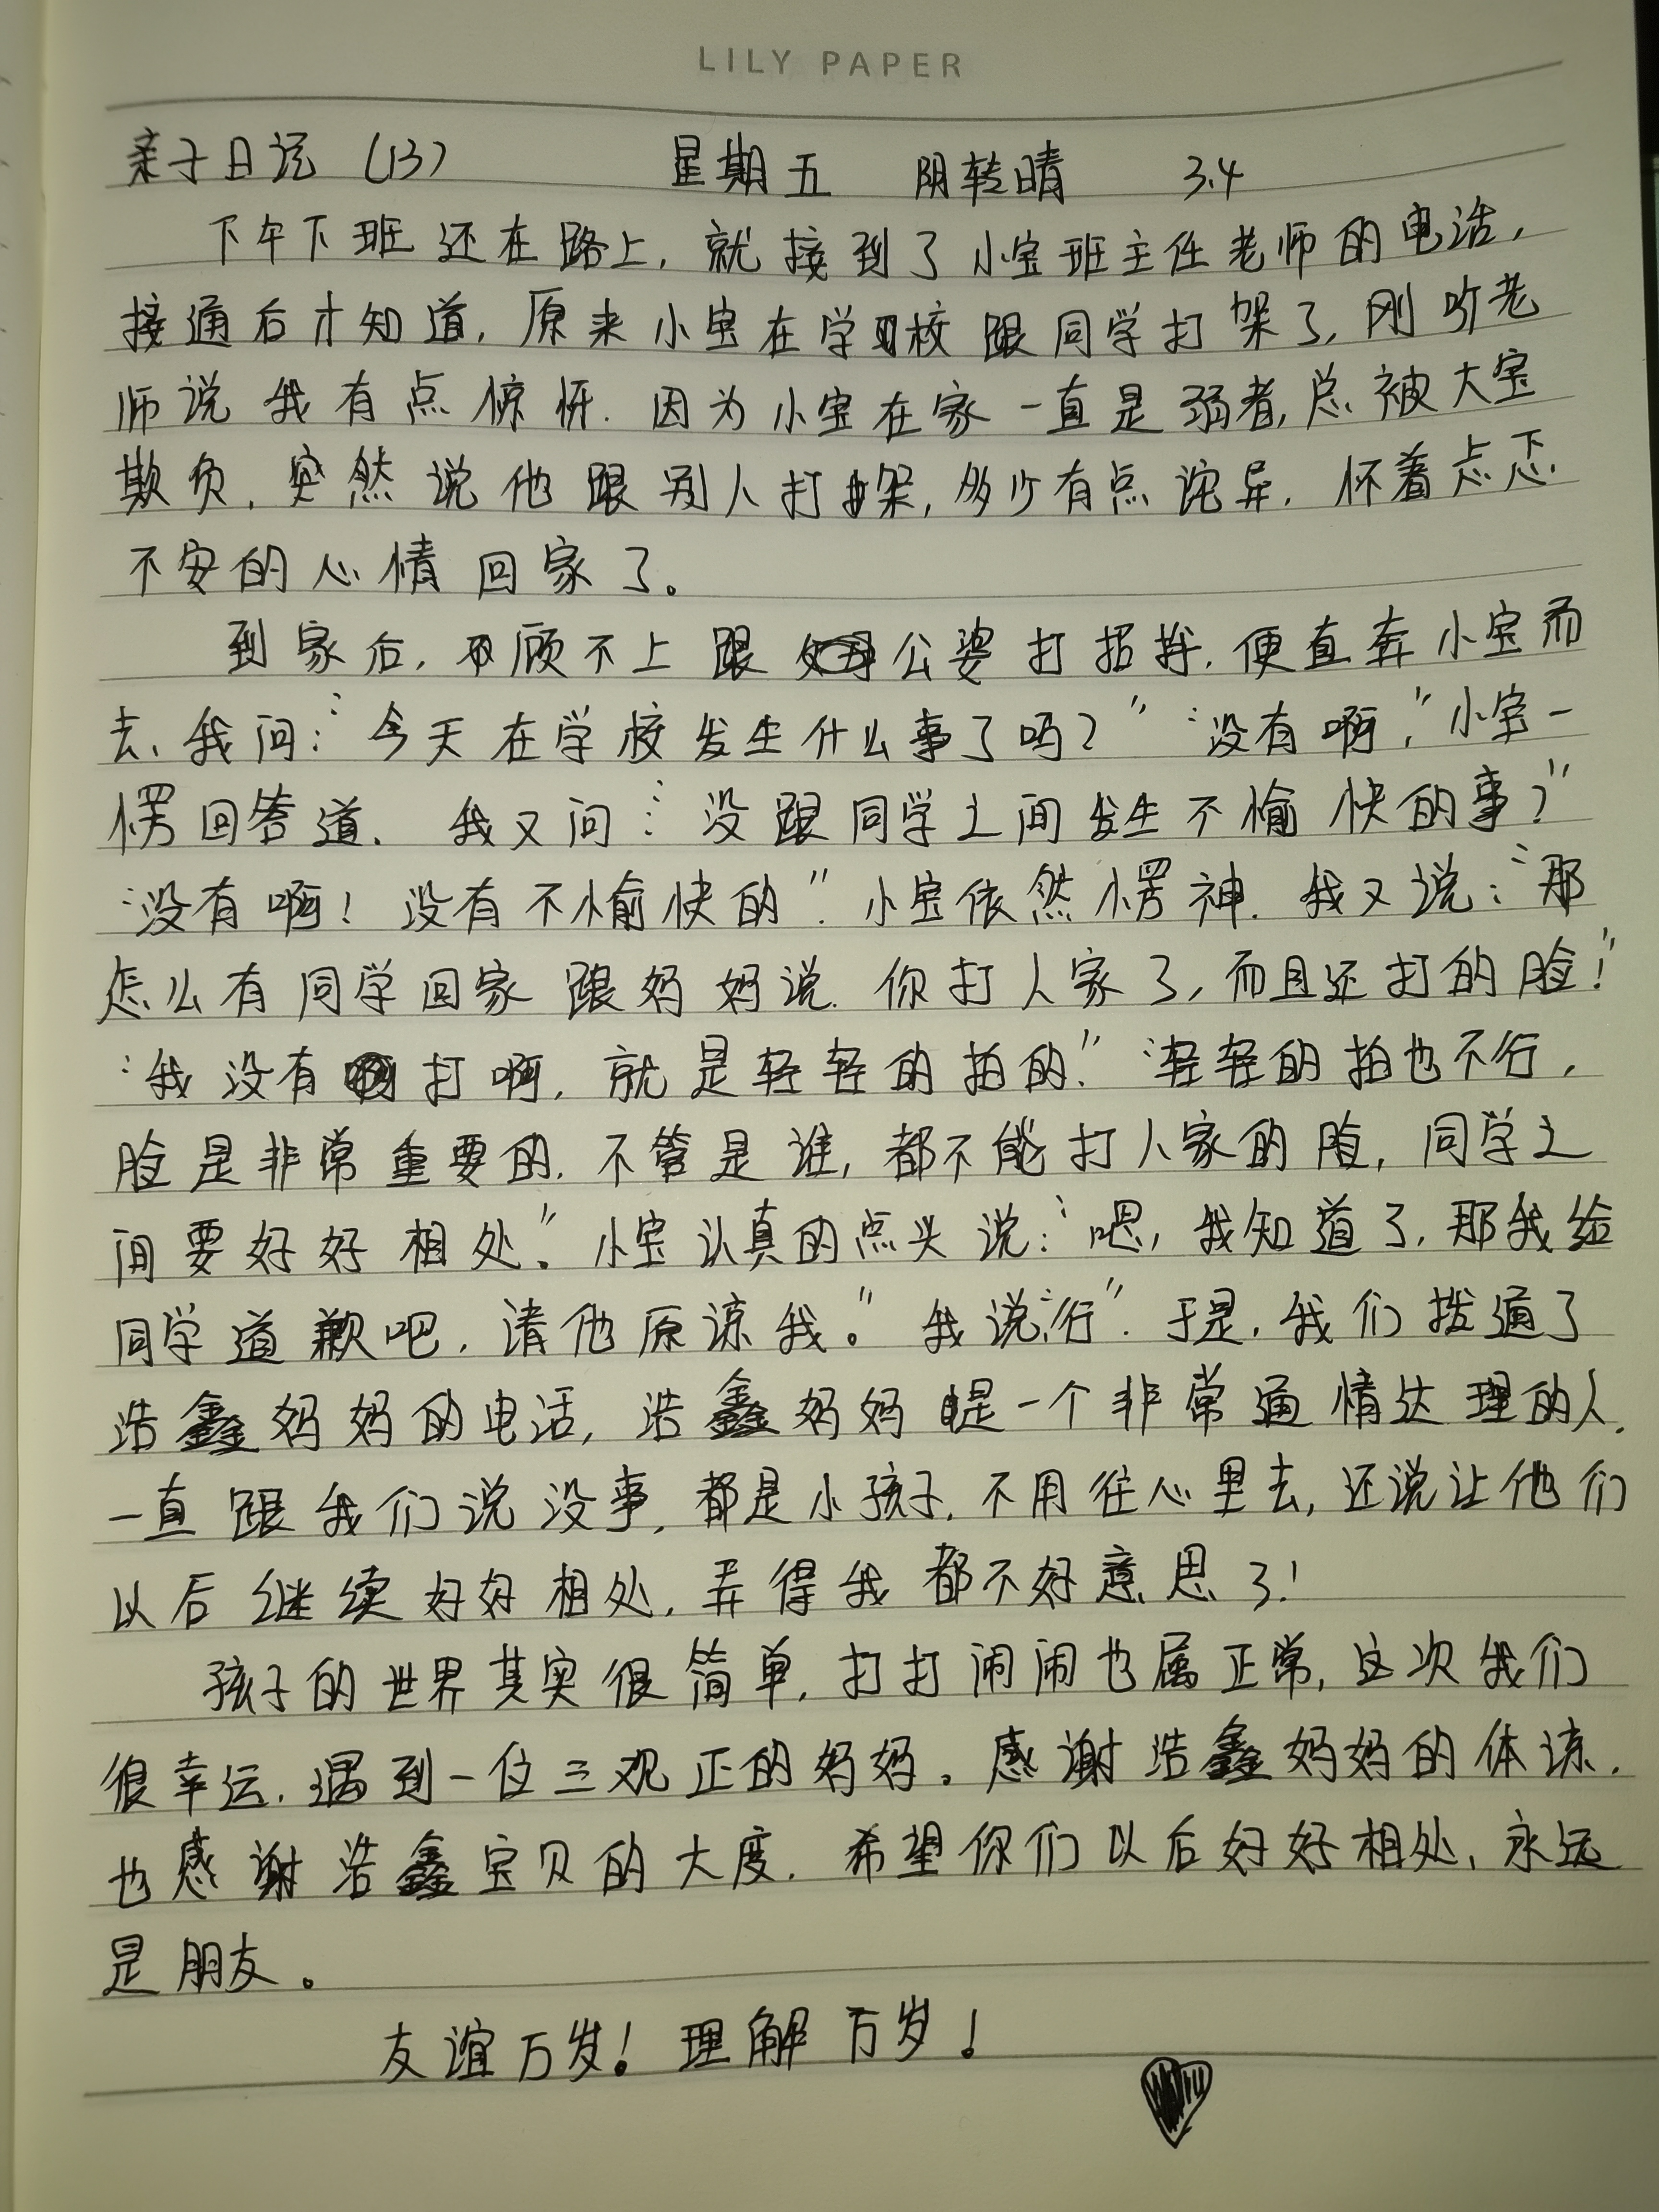 LILY PAPER
亲子日记（13） 星期五 阴转晴 3.4
下午下班还在路上，就接到了小宝班主任老师的电话，
接通后才知道，原来小宝在学校跟同学打架了，刚听老
师说我有点惊讶.因为小宝在家一直是弱者，总被大宝
欺负，突然说他跟别人打架，多少有点诧异.怀着忐忑
不安的心情回家了。
到家后，顾不上跟公婆打招呼.便直奔小宝而
去、我问：“今天在学校发生什么事了吗？”“没有啊，”小宝一
愣回答道.我又问：“没跟同学之间发生不愉快的事？”
“没有啊！没有不愉快的”小宝依然愣神.我又说：“那
怎么有同学回家跟妈妈说.你打人家了，而且还打的脸！”
“我没有打啊，就是轻轻的拍的.”“轻轻的拍也不行，
脸是非常重要的.不管是谁，都不能打人家的脸，同学之
间要好好相处”。小宝认真的点头说：“嗯，我知道了，那我给
同学道歉吧，请他原谅我。”我说“行”.于是，我们拨通了
浩鑫妈妈的电话，浩鑫妈妈是一个非常通情达理的人.
一直跟我们说没事，都是小孩子，不用往心里去，还说让他们
以后继续好好相处，弄得我都不好意思了！
孩子的世界其实很简单，打打闹闹也属正常，这次我们
很幸运.遇到一位三观正的妈妈。感谢浩鑫妈妈的体谅.
也感谢浩鑫宝贝的大度.希望你们以后好好相处，永远
是朋友。
友谊万岁！理解万岁！